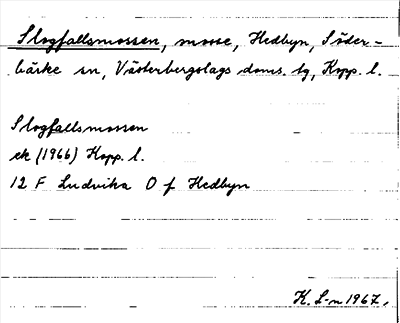 Slogfallsmossen, mosse, Hedbyn, Söder-
bärke sn, Västerbergslags doms. tg, Kopp. l.
Slogfallsmossen
ek (1966) Kopp. l.
12 F Ludvika O f Hedbyn
K. L-n 1967.